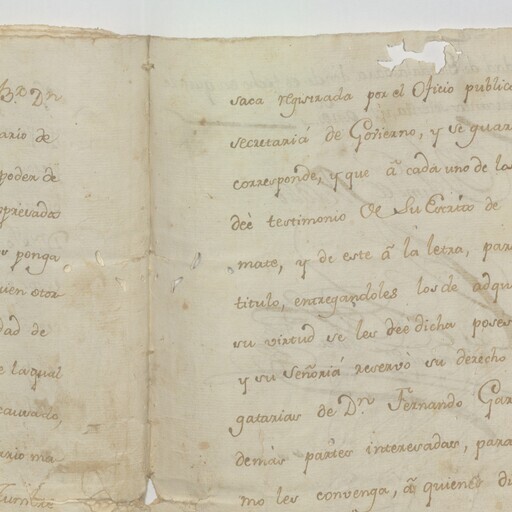 Bᵒ. Dⁿ
ario de
poder de
opresado
s ponga
uen otor
dad de
e la qual
causado,
ario ma
saca registrada por el Oficio public
secretariá de Govierno, y se guar
corresponde, y que â cada uno de la
deè testimonio de su Escrito de
mate, y de este â la letra, para
titulo, entregandoles los de adqu
su virtud se les deè dicha poses
y su Señoriá reservò su derecho
gatarias de Dⁿ Fernando Gar
demás partes interesadas, para
mo les convenga, â quienes di